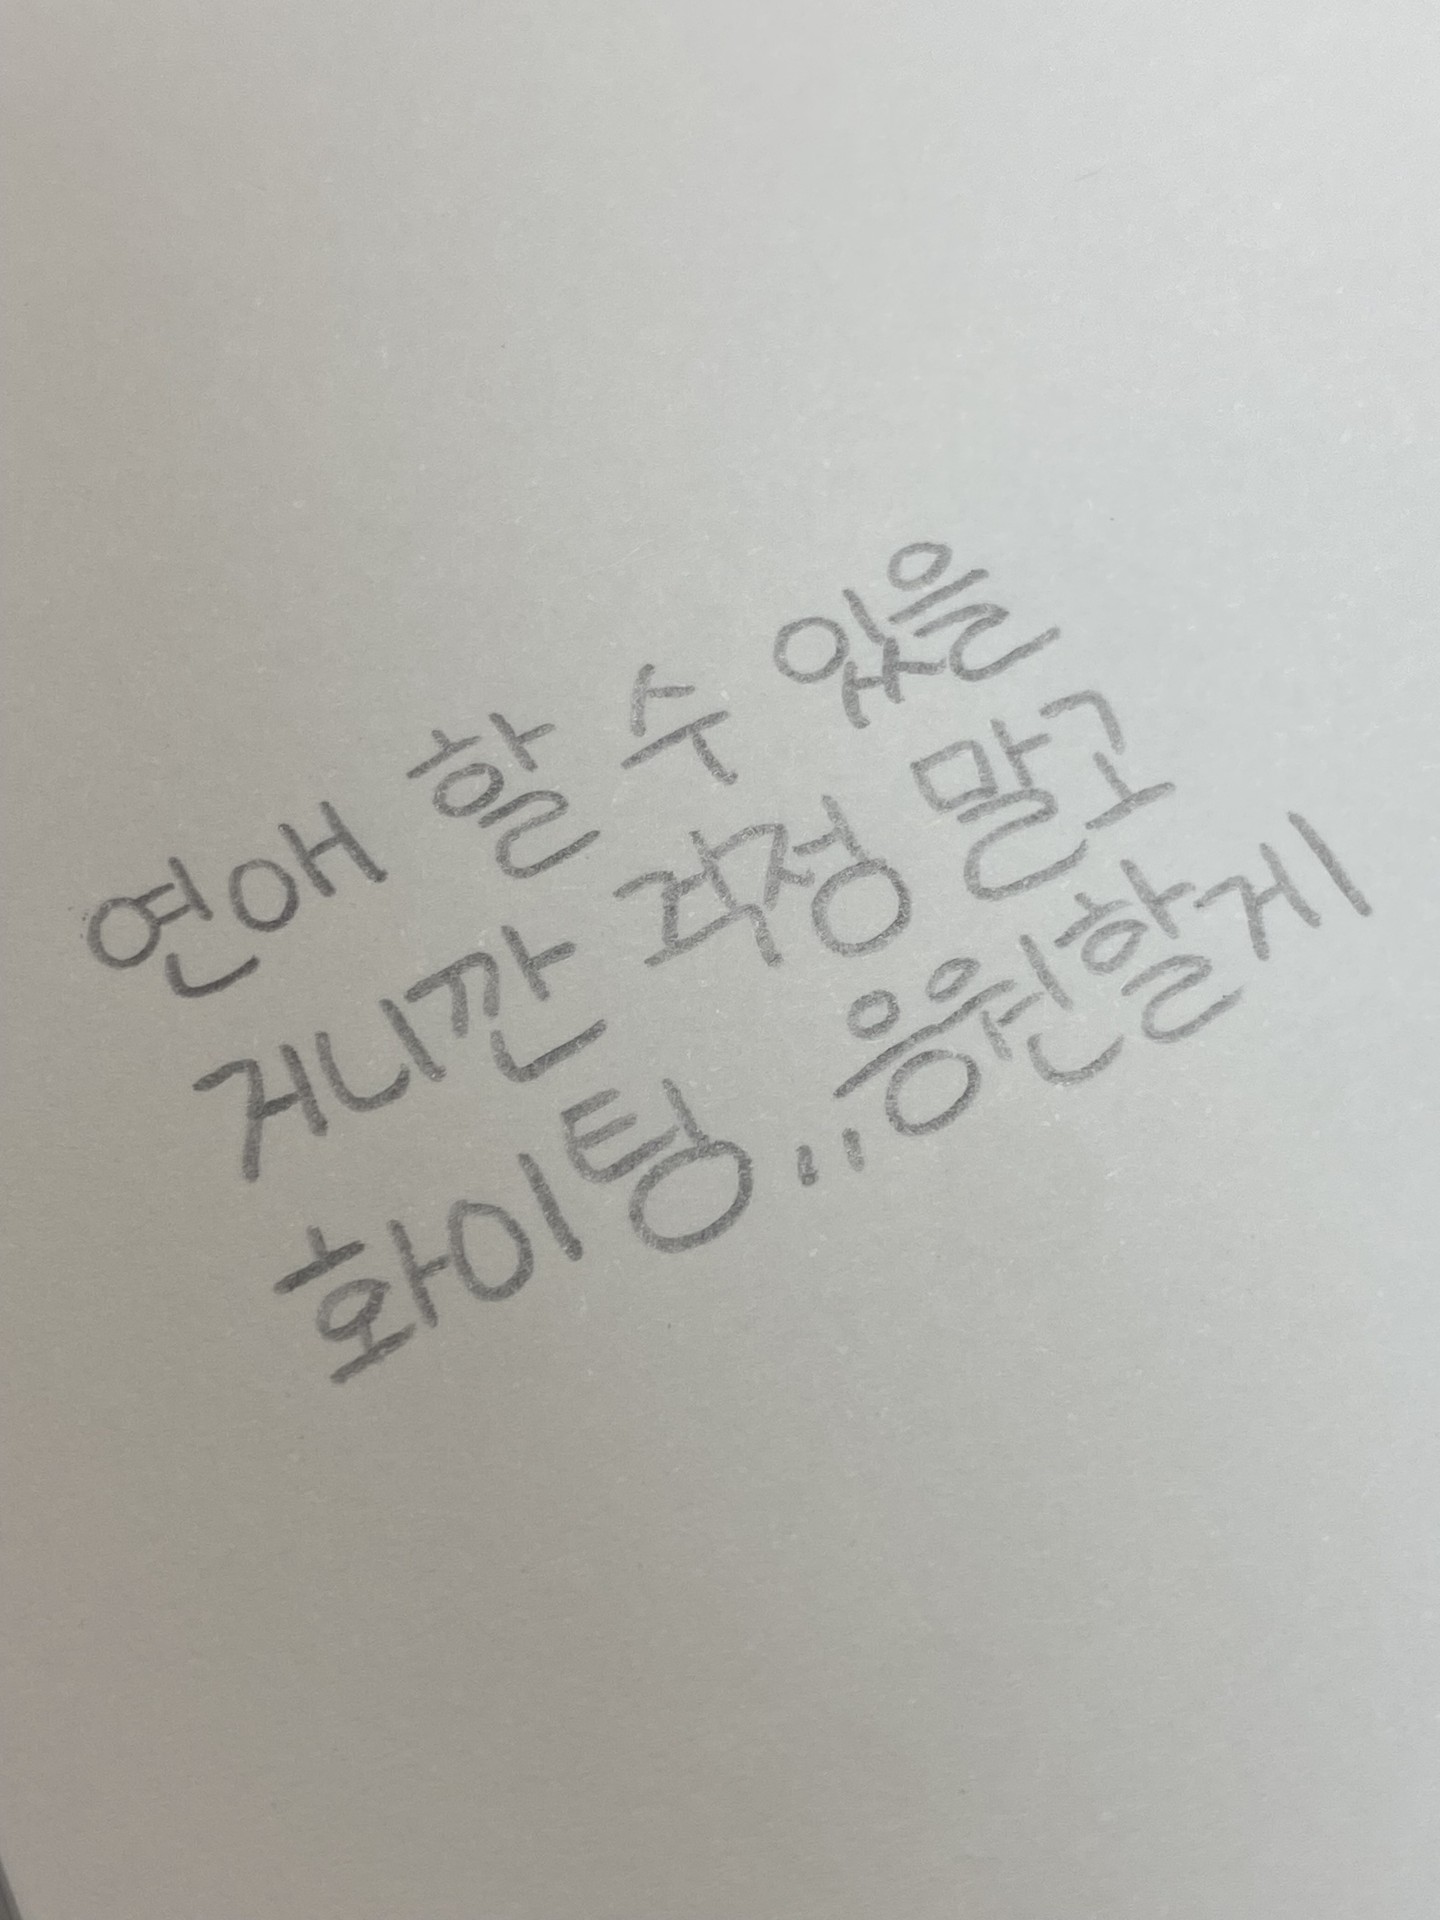 연애 할 수 있을
거니깐 걱정 말고
화이팅.. 응원할게